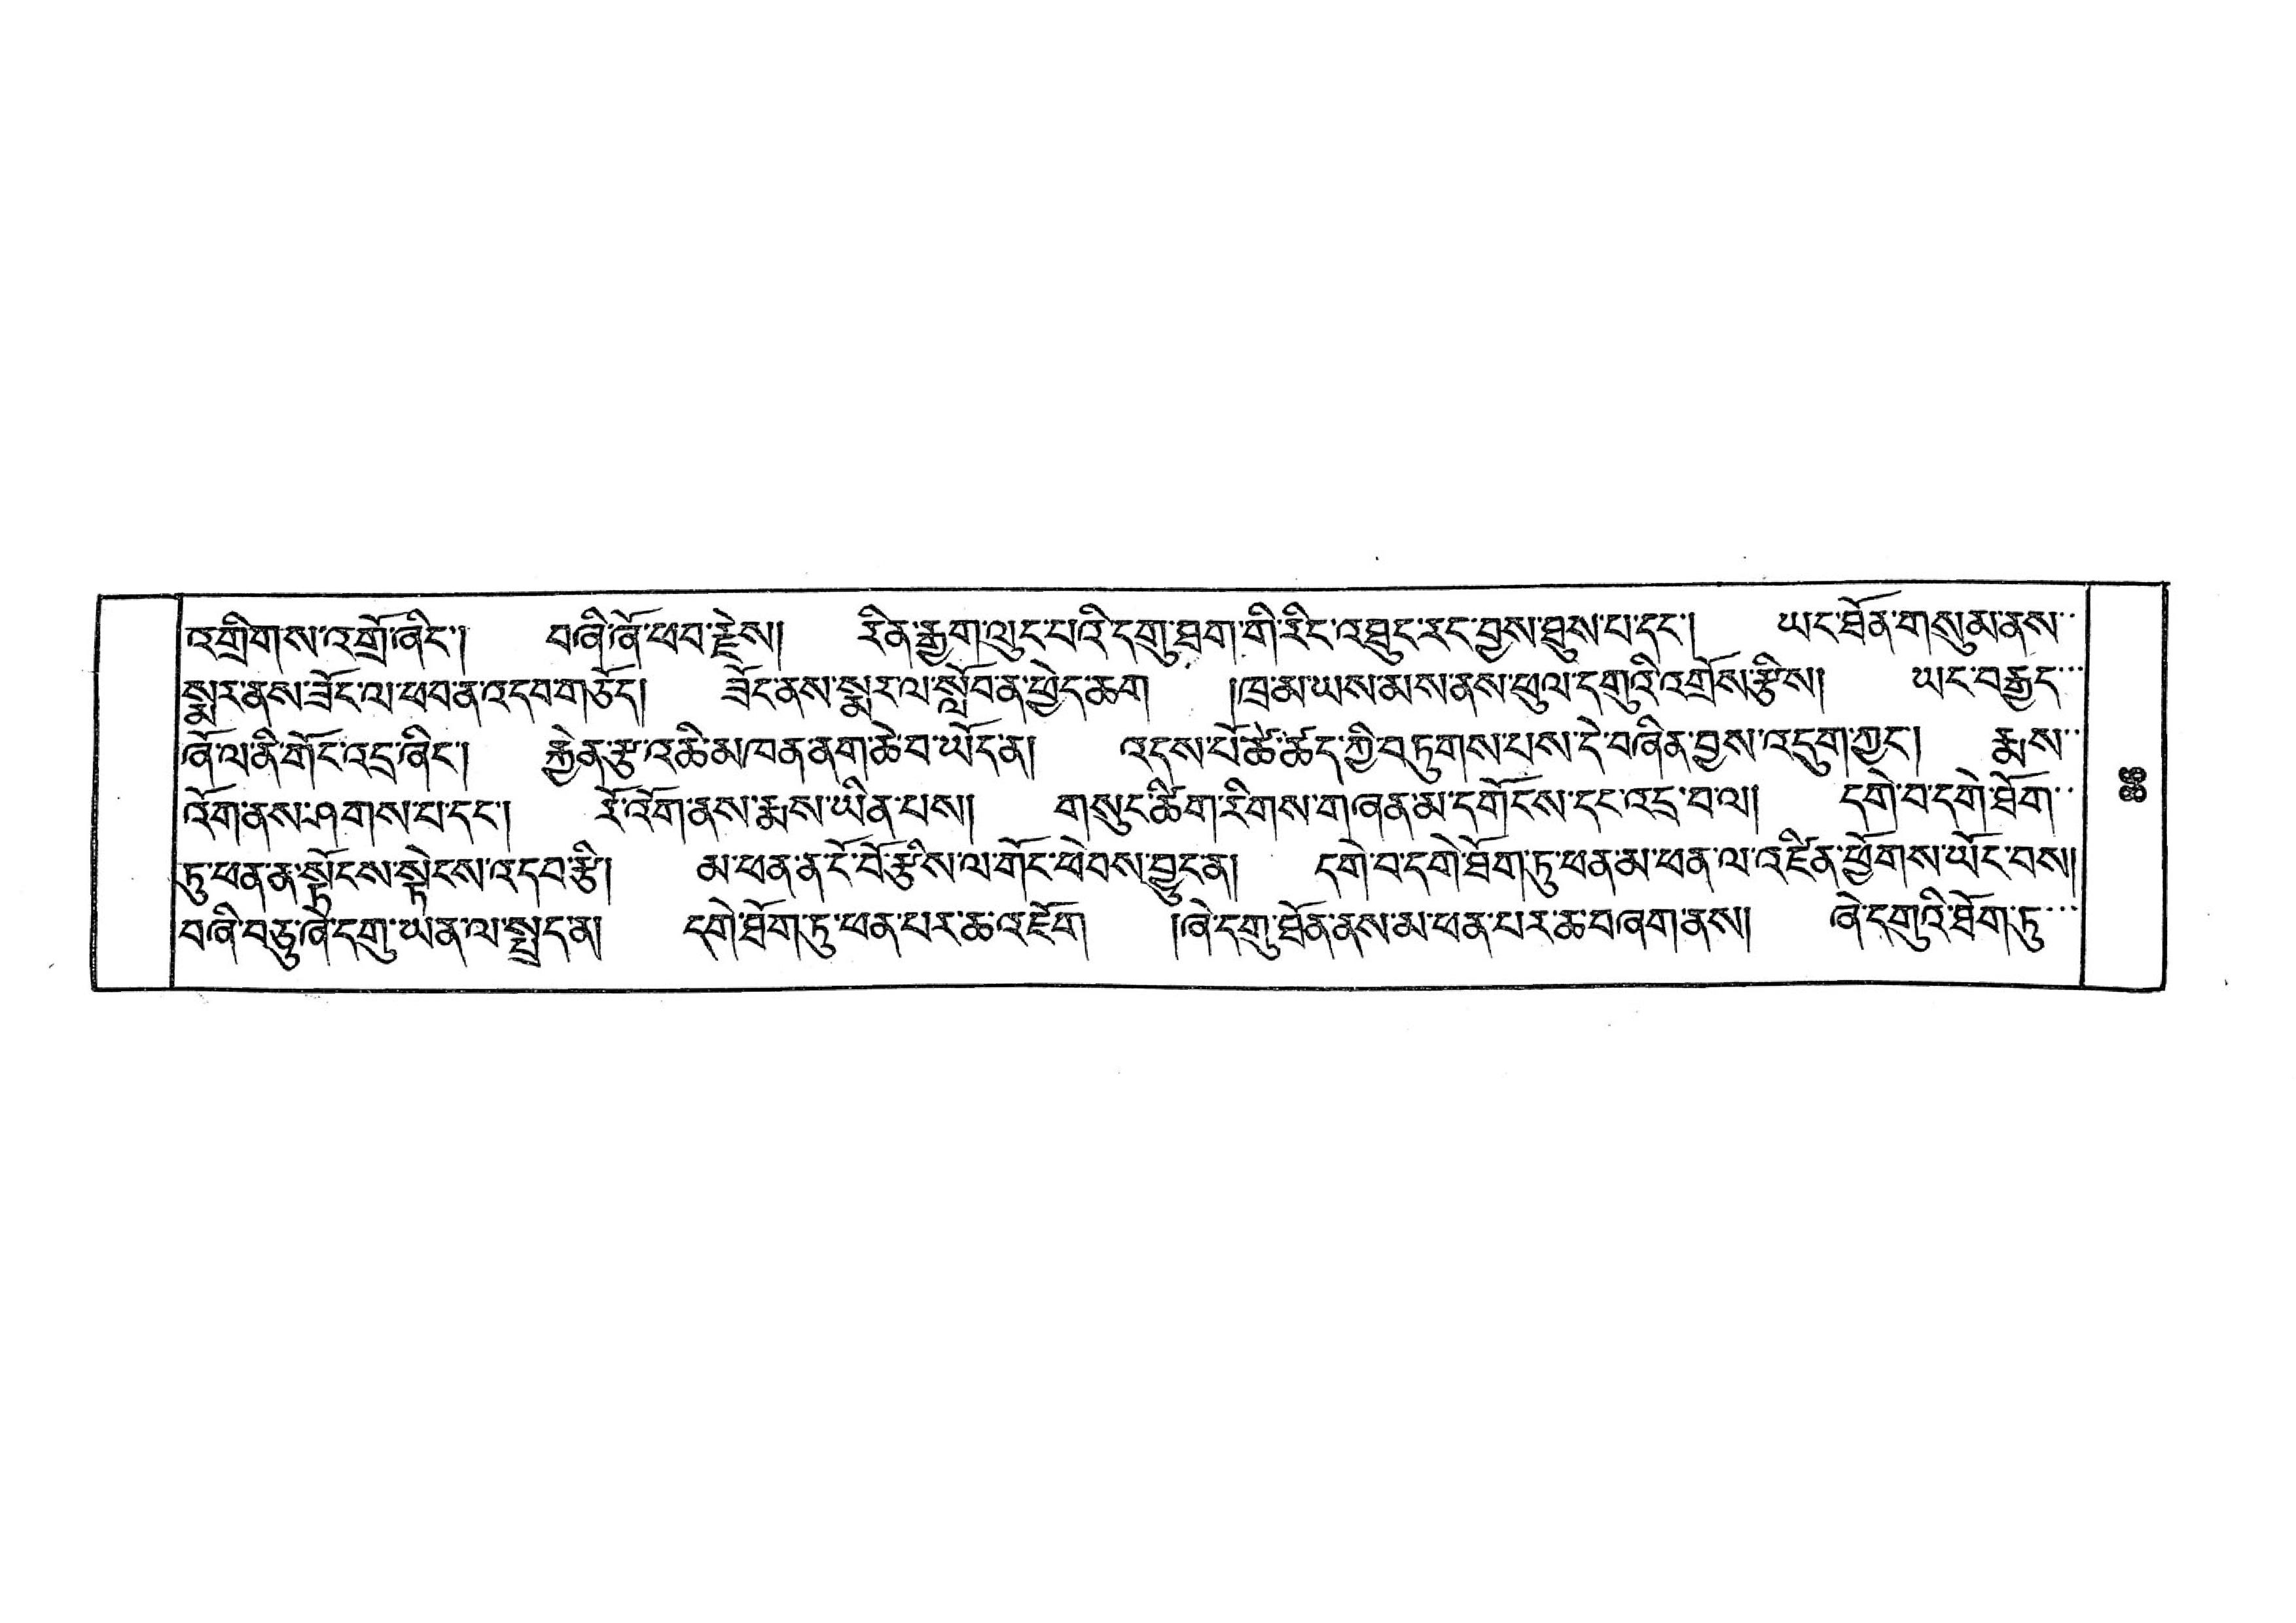 འགྲིགས་འགྲོ་ཞིང་། བཞི་ནོ་ཕབ་རྗེས། རིན་རྒྱག་ལུང་པའི་དགུ་ཐག་གི་རིང་འཐུང་རང་བྱས་ཐུས་པ་དང་། ཡང་ཐོན་གསུམ་ནས་
སྨར་ནས་ཟོང་ལ་ཕབན་འདབ་གཅོད། ཟོང་ནས་སྨར་ལ་སློབན་ཕྱེད་ཆག །ཁྲམ་ཡས་མས་ནས་ཕུལ་དགུའི་འགྲོས་རྩིས། ཡང་བརྒྱད་
ཞོ་ལ་ནི་གོང་འདྲ་ཞིང་། རྐྱེན་རྩ་འཆི་མ་ཁན་ནག་ཆེ་བ་ཡོད་ན། འདས་པོ་ཚེ་ཚད་ཀྱི་བཏུགས་པས་དེ་བཞིན་བྱས་འདུག་ཀྱང་། རྨས་
འོག་ནས་ཤགས་པ་དང་། རོ་འོག་ནས་རྨས་ཡིན་པས། གསུང་ཚིག་རིགས་གཞན་མ་དགོངས་དང་འདྲ་བ་ལ། དགེ་བ་དགེ་ཐོག་
ཏུ་ཕན་ན་སྟོངས་སྟེངས་འདབ་རྩི། མ་ཕན་ན་ངོ་བོ་རྩིས་ལ་གོང་ཕེབས་བྱུང་ན། དགེ་བ་དགེ་ཐོག་ཏུ་ཕན་མ་ཕན་ལ་འཛིན་ཕྱོགས་ཡོང་བས།
བཞི་བཅུ་ཞེ་དགུ་ཡན་ལ་སྤྲད་ན། དགེ་ཐོག་ཏུ་ཕན་པར་ཆ་འཇོག །ཞེ་དགུ་ཐོན་ནས་མ་ཕན་པར་ཆ་བཞག་ནས། ཞེ་དགུའི་ཐོག་ཏུ་